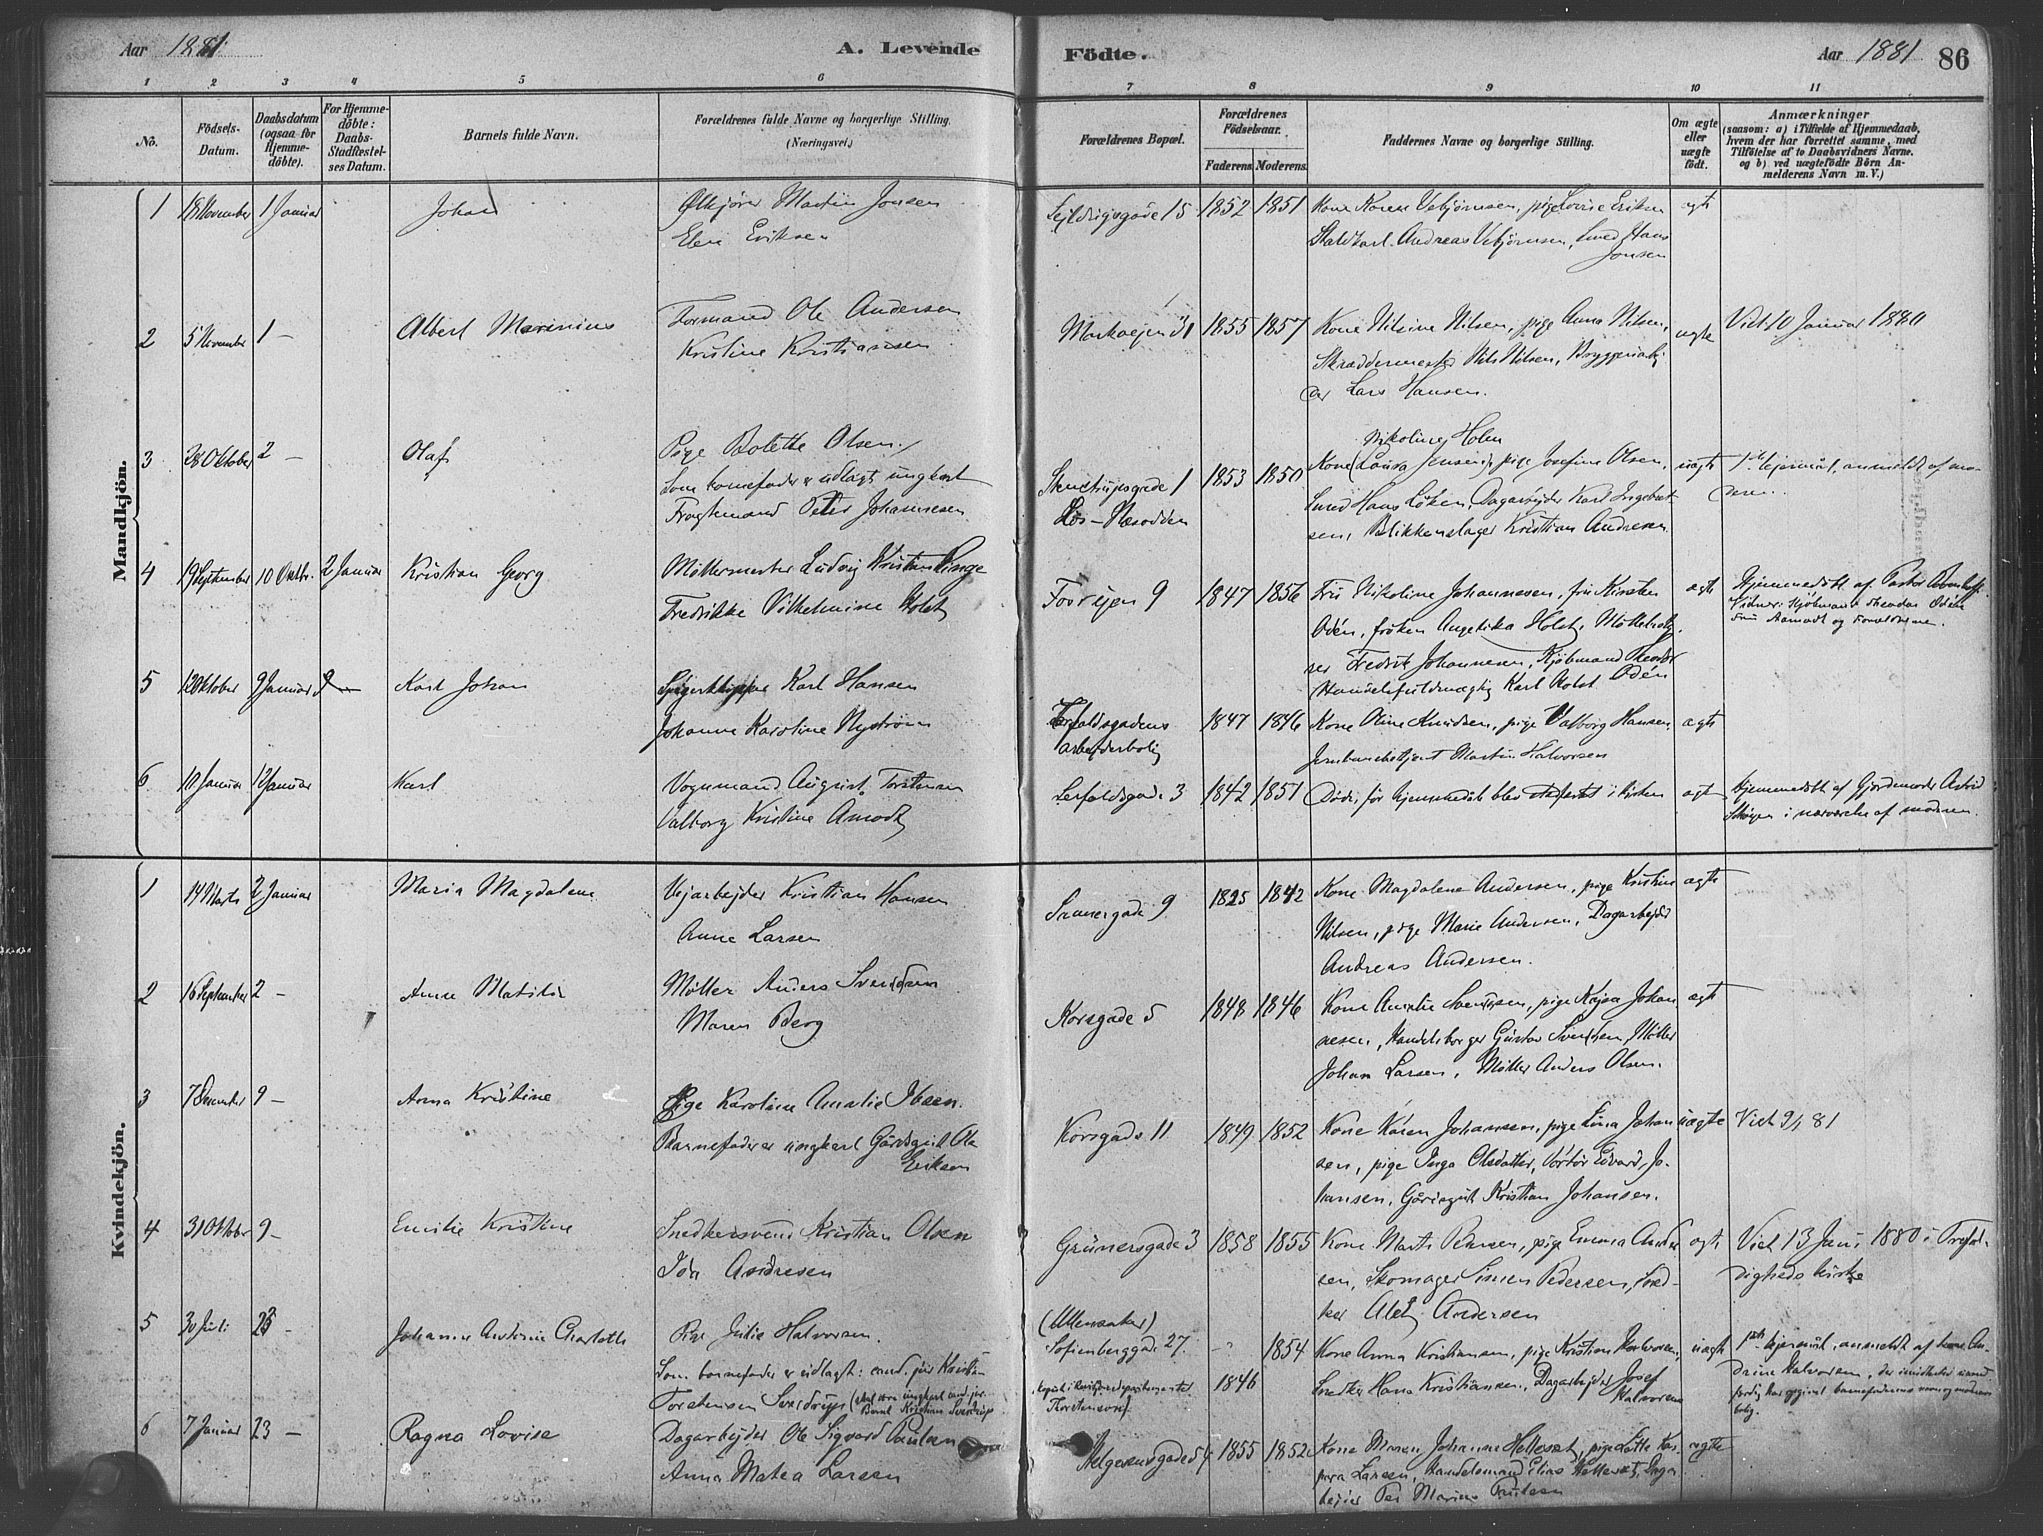 Aar 1881.
A. Levende
Födte.
Aar 1881
86
1 2 3 4 5 6 7 8 9 10 11
No.
Födsels-Datum.
Daabsdatum (ogsaa for Hjemme-döbte).
For Hjemme-döbte: Daabs-Stadfæstel-ses Datum.
Barnets fulde Navn.
Forældrenes fulde Navne og borgerlige Stilling. (Næringsvei.)
Forældrenes Bopæl.
Forældrenes Födselsaar.
Faderens Moderens
Faddernes Navne og borgerlige Stilling.
Om ægte eller uægte födt.
Anmærkninger
(saasom: a) i Tilfælde af Hjemmedaab, hvem der har forrettet samme, med Tilföielse af to Daabsvidners Navne, og b) ved uægtefödte Börn An-melderens Navn m. V.)
Mandkjön.
1 18 November 1 Januar Johan
Martin Jonsen
Eline Eriksen
15 1852 1851
Kone Karen Vebjørnsen, pige Lovise Eriksen
Staldkarl Andreas Vebjørnsen, Smed Hans
Jonsen
ægte
2 5 November 1 - Albert Marinius
Formand Ole Andersen
Kristine Kristiansen
Markvejen 31 1855 1857
Kone Nilsine Nilsen, pige Anna Nilsen,
Skræddermester Nils Nilsen, Bryggeriarbej
der Lars Hansen.
ægte
Viet 10 Januar 1880
3 28 Oktober 2 - Olaf
Pige Bolette Olsen,
Som barnefader er udlagt ungkarl
Fragtemand Peter Johannesen
1 1853 1850
Næsodden
Nikoline Holm
Kone (Laura Jensen), pige Josefine Olsen,
Smed Hans Løken, Dagarbejder Karl Ingebret
sen, Blikkenslager Kristian Andresen
uægte
anmeldt af mo
deren.
4 19 September 10 Oktbr. 2 Januar Kristian Georg
Møllermester Ludvig Kristian Ringe
Fredrikke Vilhelmine Holst
Fosvejen 9 1847 1856
Fru Nikoline Johannesen, fru Kirsten
Odén, frøken Angelika Holst, Møllebesty
rer Fredrik Johannesen, Kjøbmand Theodor
Handelsfuldmægtig Karl Holst Odén
ægte
Hjemmedøbt af Pastor
Vidner: Kjøbmand Theodor Odén
Fru Aamodt og Forældrene.
5 12 Oktober 9 Januar Karl Johan
Karl Hansen
Johanne Karoline Nystrøm
Lerfaldsgadens
arbejderbolig
1847 1846
Kone Oline Knudsen, pige Valborg Hansen,
Jernbanebetjent Martin Halvorsen
ægte
6 10 Januar 12 Januar Karl
Vognmand August Torstensen
Valborg Kristine Amodt
Lerfaldsgade 3 1842 1851
Døde, før hjemmedåb blev stadfæstet i kirken
ægte
Hjemmedøbt af Gjordemoder Astrid
i nærværelse af moderen.
Kvindekjön.
1 14 Marts 2 Januar Maria Magdalena
Vejarbejder Kristian Hansen
Anne Larsen
Sannergade 9 1825 1842
Kone Magdalene Andersen, pige Kristine
Nilsen, pige Marie Andersen, Dagarbejder
Andreas Andersen.
ægte
2 16 September 2 - Anne Matilde
Møller Anders Svendsen
Maren Berg
Korsgade 5 1848 1846
Kone Amalie Svendsen, pige Kajsa Johan
nesen, Handelsborger Gustav Svendsen, Møller
Johan Larsen, Møller Anders Olsen.
ægte
3 7 December 9 - Anna Kristine
Pige Karoline Amalie Ibsen.
Barnefader er ungkarl Gårdsgut Ole
Eriksen
Korsgade 11 1849 1852
Kone Karen Johansen, pige Lina Johan
sen, pige Inga Olsdatter, Edvard Jo-
hansen, Gårdsgut Kristian Johansen.
uægte
Viet 9/1 81
4 31 Oktober 9 - Emilie Kristine
Snedkersvend Kristian Olsen
Ida Andresen
Grünersgade 3 1858 1855
Kone Marte Pedersen, pige Emma Ander
sen, Skomager Simen Pedersen, Sned-
ker Andersen
ægte
Viet 13 Juni 1880 i Trefol-
digheds kirke
5 30 Juli 23 - Johanne Andrine Charlotte
Pige Julie Halvorsen.
Som barnefader er udlagt: cand. jur. Kristian
Torstensen Sverdrup (skal være ungkarl cand. jur.
Bernt Kristian Sverdrup
(Ullensaker)
Sofienberggade 27. - 1854
1846
Kone Anna Kristiansen, pige Kristine Halvorsen,
Snedker Hans Kristiansen, Dagarbejder Josef
Halvorsen
uægte
anmeldt af An-
drine Halvorsen, der
har opgivet barnefaderens navn og
bolig.
6 7 Januar 23 - Ragna Lovise
Dagarbejder Ole Sigvard Paulsen
Anna Matea Larsen
Helgesensgade 54 1855 1852
Kone Maren Johanne Hellesæt, pige Lotte Kas-
para Larsen, Handelsmand Elias Hellesæt, Dagar
bejder Per Marius Paulsen
ægte